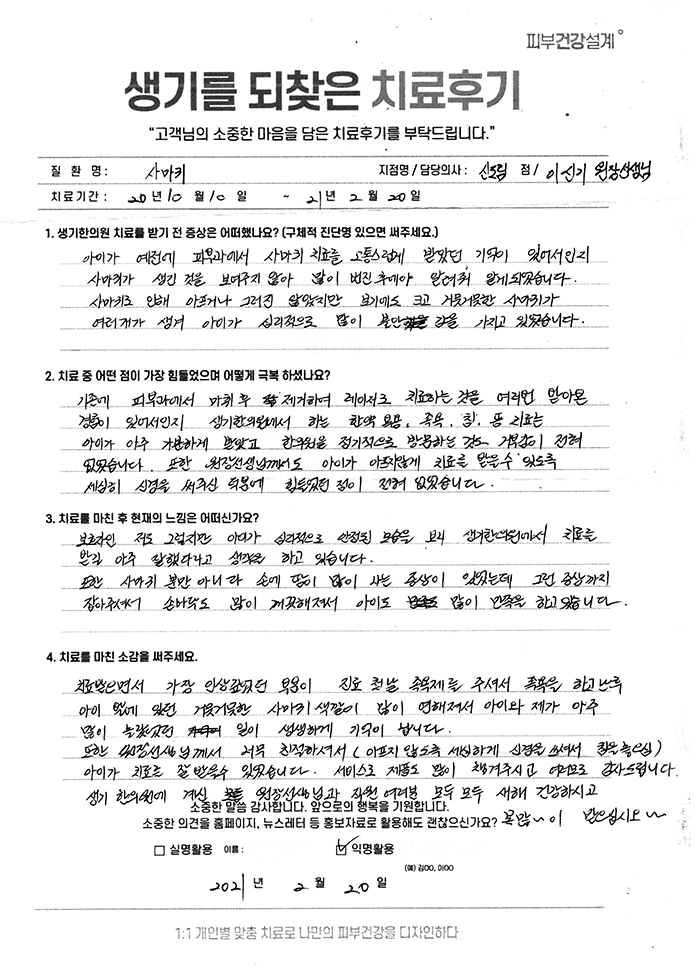 피부건강설계°
생기를 되찾은 치료후기
“고객님의 소중한 마음을 담은 치료후기를 부탁드립니다.”
질 환 명 : 사마귀 지점명 / 담당의사 : 신도림 점 / 이신기 원장선생님
치료기간 : 20년 10월 10일 ~ 21년 2월 20일
1. 생기한의원 치료를 받기 전 증상은 어떠했나요? (구체적 진단명 있으면 써주세요.)
아이가 예전에 피부과에서 사마귀 치료를 고통스럽게 받았던 기억이 있어서인지
사마귀가 생긴 것을 보여주지 않아 많이 번진 후에야 알려줘 알게되었습니다.
사마귀로 인해 아프거나 그러진 않았지만 보기에도 크고 거뭇거뭇한 사마귀가
여러개가 생겨 아이가 심리적으로 많이 불안감을 가지고 있었습니다.
2. 치료 중 어떤 점이 가장 힘들었으며 어떻게 극복 하셨나요?
기존에 피부과에서 마취 후 제거하며 레이저로 치료하는 것을 여러번 받아온
경험이 있어서인지 생기한의원에서 하는 한약 복용, 족욕, 침, 뜸 치료는
아이가 아주 편하게 받았고 한의원을 정기적으로 방문하는 것도 거부감이 전혀
없었습니다. 또한 원장선생님께서도 아이가 아프지않게 치료를 받을수 있도록
세심히 신경을 써주신 덕분에 힘들었던 점이 전혀 없었습니다.
3. 치료를 마친 후 현재의 느낌은 어떠신가요?
보호자인 저도 그렇지만 아이가 심리적으로 안정된 모습을 보니 생기한의원에서 치료를
받길 아주 잘했다라고 생각을 하고 있습니다.
또한 사마귀 뿐만 아니라 손에 땀이 많이 나는 증상이 있었는데 그런 증상까지
잡아주셔서 손바닥도 많이 깨끗해져서 아이도 많이 만족을 하고있습니다.
4. 치료를 마친 소감을 써주세요.
치료받으면서 가장 인상깊었던 부분이 진료 첫날 족욕제를 주셔서 족욕을 하고난후
아이 발에 있던 거뭇거뭇한 사마귀 색깔이 많이 연해져서 아이와 제가 아주
많이 놀랐었던 일이 생생하게 기억이 납니다.
또한 원장선생님께서 너무 친절하셔서 (아프지 않도록 세심하게 신경을 쓰셔서 침을 놓으심)
아이가 치료를 잘 받을수 있었습니다. 서비스로 제품도 많이 챙겨주시고 여러모로 감사드립니다.
생기 한의원에 계신 원장선생님과 직원 여러분 모두 모두 새해 건강하시고
소중한 말씀 감사합니다. 앞으로의 행복을 기원합니다.
소중한 의견을 홈페이지, 뉴스레터 등 홍보자료로 활용해도 괜찮으신가요? 복많~이 받으십시오~
□ 실명활용 이름 : ☑ 익명활용
(예) 김OO, 이OO
2021년 2월 20일
1:1 개인별 맞춤 치료로 나만의 피부건강을 디자인하다